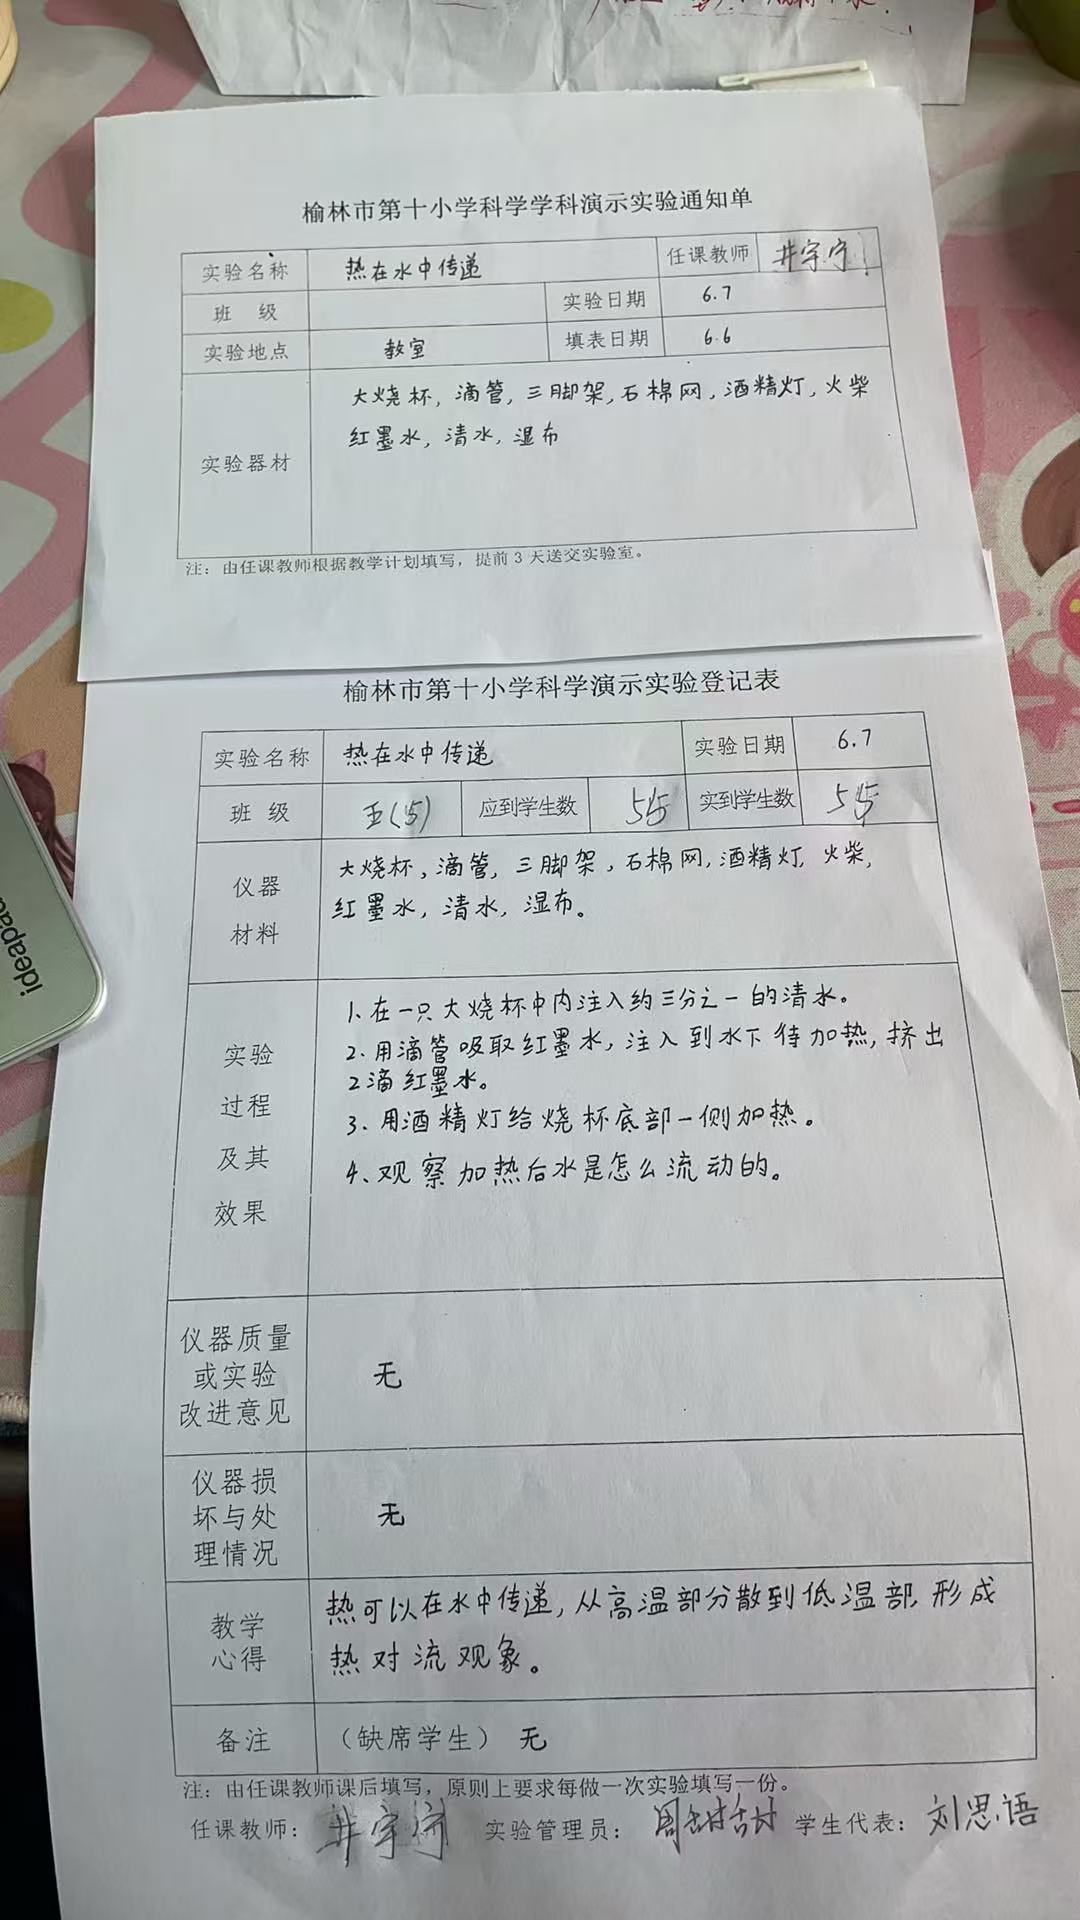 榆林市第十小学科学学科演示实验通知单
实验名称 热在水中传递 任课教师 井宇宁
班 级 实验日期 6.7
实验地点 教室 填表日期 6.6
实验器材 大烧杯，滴管，三脚架，石棉网，酒精灯，火柴
红墨水，清水，湿布
注：由任课教师根据教学计划填写，提前 3 天送交实验室。
榆林市第十小学科学演示实验登记表
实验名称 热在水中传递 实验日期 6.7
班 级 五(5) 应到学生数 实到学生数
仪器
材料
大烧杯，滴管，三脚架，石棉网，酒精灯，火柴，
红墨水，清水，湿布。
实验
过程
及其
效果
1、在一只大烧杯中内注入约三分之一的清水。
2、用滴管吸取红墨水，注入到水下待加热，挤出
2滴红墨水。
3、用酒精灯给烧杯底部一侧加热。
4、观察加热后水是怎么流动的。
仪器质量
或实验
改进意见
无
仪器损
坏与处
理情况
无
教学
心得
热可以在水中传递，从高温部分散到低温部，形成
热对流观象。
备注 （缺席学生） 无
注：由任课教师课后填写，原则上要求每做一次实验填写一份。
任课教师：井宇宁 实验管理员：周甜甜 学生代表：刘思语
ideapad